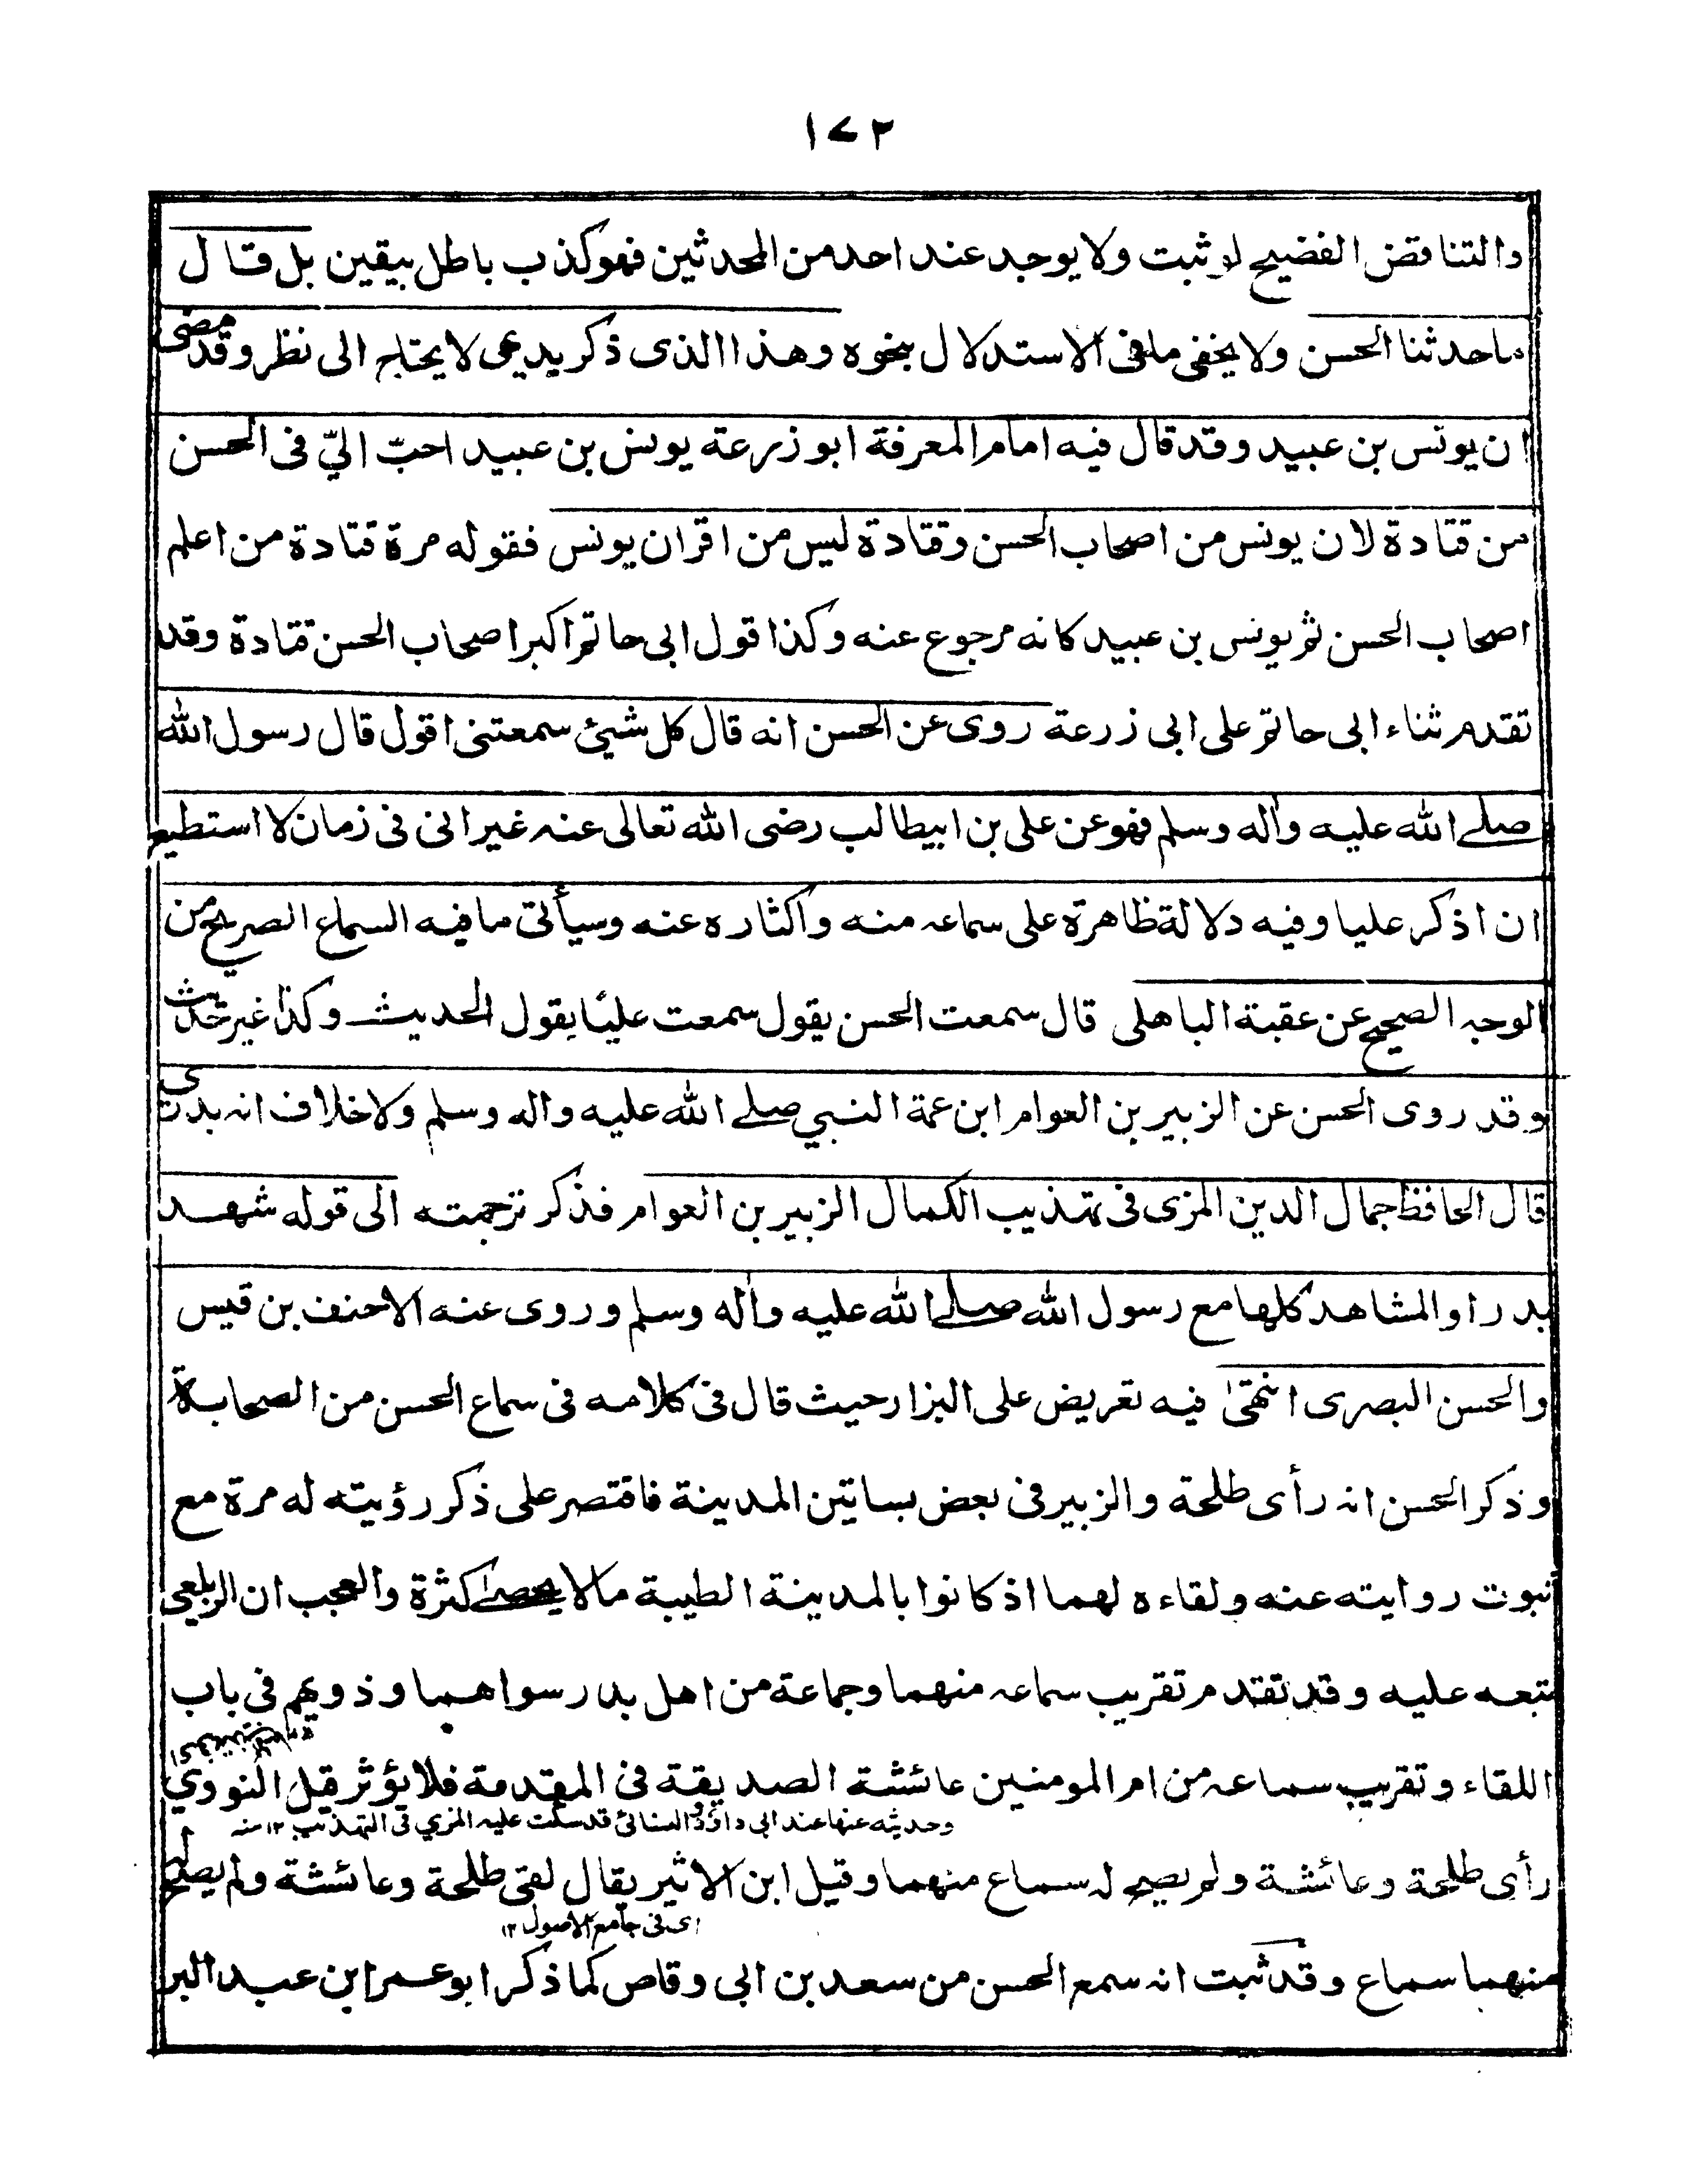 ١٧٢
والتناقض الفضيح لو ثبت ولا يوجد عند احد من المحدثين فهو كذب باطل بيقين بل قال
ماحدثنا الحسن ولا يخفى ما فى الاستدلال بنحوه وهذا الذى ذكر يدعى لا يحتاج الى نظر وقد مضى
ان يونس بن عبيد وقد قال فيه امام المعرفة ابو زرعة يونس بن عبيد احبّ اليّ فى الحسن
من قتادة لان يونس من اصحاب الحسن وقتادة ليس من اقران يونس فقوله مرة قتادة من اعلم
اصحاب الحسن ثم يونس بن عبيد كانه مرجوع عنه وكذا قول ابى حاتم اكبر اصحاب الحسن قتادة وقد
تقدم ثناء ابى حاتم على ابى زرعة روى عن الحسن انه قال كل شيئ سمعتنى اقول قال رسول الله
صلے الله عليه واٰله وسلم فهو عن على بن ابيطالب رضى الله تعالى عنه غير انى فى زمان لا استطيع
ان اذكر عليا وفيه دلالة ظاهرة على سماعه منه واكثاره عنه وسيأتى ما فيه السماع الصريح من
الوجه الصحيح عن عقبة الباهلى قال سمعت الحسن يقول سمعت عليًا يقول الحديث وكذا غير حديث
وقد روى الحسن عن الزبير بن العوام ابن عمة النبي صلے الله عليه واله وسلم ولا خلاف انه بدرى
قال الحافظ جمال الدين المزى فى تهذيب الكمال الزبير بن العوام فذكر ترجمته الى قوله شهد
بدرا والمشاهد كلها مع رسول الله صلے الله عليه واٰله وسلم وروى عنه الاحنف بن قيس
والحسن البصرى انتهىٰ فيه تعريض على البزار حيث قال فى كلامه فى سماع الحسن من الصحابة
وذكر الحسن انه رأى طلحة والزبير فى بعض بساتين المدينة فاقتصر على ذكر رؤيته له مرة مع
ثبوت روايته عنه ولقاءه لهما اذ كانوا بالمدينة الطيبة مالا يحصےٰ كثرة والعجب ان الزيلعى
تبعه عليه وقد تقدم تقريب سماعه منهما وجماعة من اهل بدر سواهما وذويهم فى باب
اللقاء وتقريب سماعه من ام المومنين عائشة الصديقة فى المقدمة فلا يؤثر قيل النووي
وحديثه عنها عند ابى داؤد والنسائى قد سكت عليه المزي فى التهذيب ١٢ منه
رأى طلحة وعائشة ولم يصح له سماع منهما وقيل ابن الاثير يقال لقى طلحة وعائشة ولم يصح له
اى فى جامع الاصول ١٢
منهما سماع وقد ثبت انه سمع الحسن من سعد بن ابى وقاص كما ذكر ابو عمر ابن عبد البر